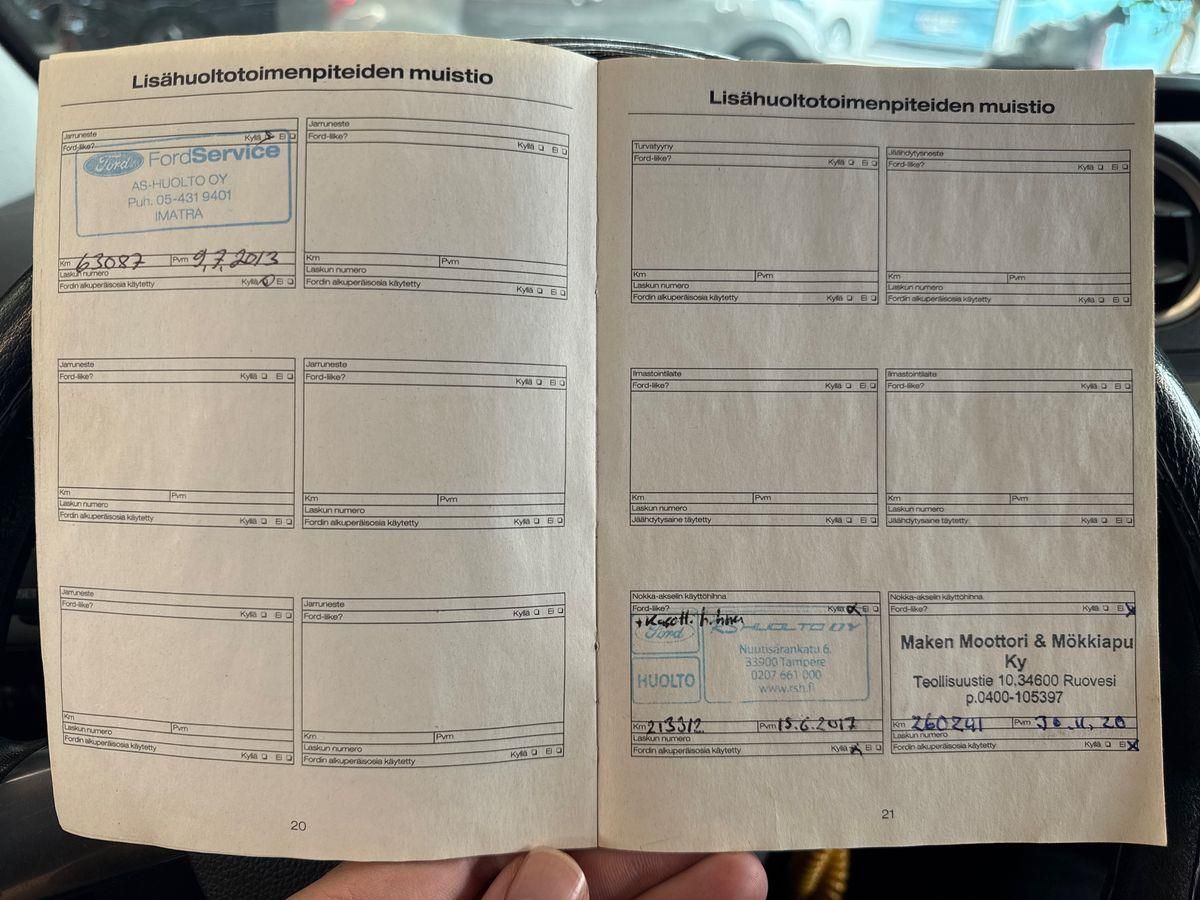 Lisähuoltotoimenpiteiden muistio
Jarruneste
Ford-liike? Kyllä Ei
Ford FordService
AS-HUOLTO OY
Puh. 05-431 9401
IMATRA
Km 63087 Pvm 9.7.2013
Laskun numero
Fordin alkuperäisosia käytetty Kyllä Ei
Jarruneste
Ford-liike? Kyllä Ei
Km Pvm
Laskun numero
Fordin alkuperäisosia käytetty Kyllä Ei
Jarruneste
Ford-liike? Kyllä Ei
Km Pvm
Laskun numero
Fordin alkuperäisosia käytetty Kyllä Ei
Jarruneste
Ford-liike? Kyllä Ei
Km Pvm
Laskun numero
Fordin alkuperäisosia käytetty Kyllä Ei
Jarruneste
Ford-liike? Kyllä Ei
Km Pvm
Laskun numero
Fordin alkuperäisosia käytetty Kyllä Ei
Jarruneste
Ford-liike? Kyllä Ei
Km Pvm
Laskun numero
Fordin alkuperäisosia käytetty Kyllä Ei
20
Lisähuoltotoimenpiteiden muistio
Turvatyyny
Ford-liike? Kyllä Ei
Km Pvm
Laskun numero
Fordin alkuperäisosia käytetty Kyllä Ei
Jäähdytysneste
Ford-liike? Kyllä Ei
Km Pvm
Laskun numero
Fordin alkuperäisosia käytetty Kyllä Ei
Ilmastointilaite
Ford-liike? Kyllä Ei
Km Pvm
Laskun numero
Jäähdytysaine täytetty Kyllä Ei
Ilmastointilaite
Ford-liike? Kyllä Ei
Km Pvm
Laskun numero
Jäähdytysaine täytetty Kyllä Ei
Nokka-akselin käyttöhihna
Ford-liike? Kyllä Ei
Ford RS HUOLTO OY
Nuutisarankatu 6,
33900 Tampere
HUOLTO 0207 661 000
www.rsh.fi
Km 213312 Pvm 15.6.2017
Laskun numero
Fordin alkuperäisosia käytetty Kyllä Ei
Nokka-akselin käyttöhihna
Ford-liike? Kyllä Ei
Maken Moottori & Mökkiapu
Ky
Teollisuustie 10,34600 Ruovesi
p.0400-105397
Km 260241 Pvm 30.11.20
Laskun numero
Fordin alkuperäisosia käytetty Kyllä Ei
21